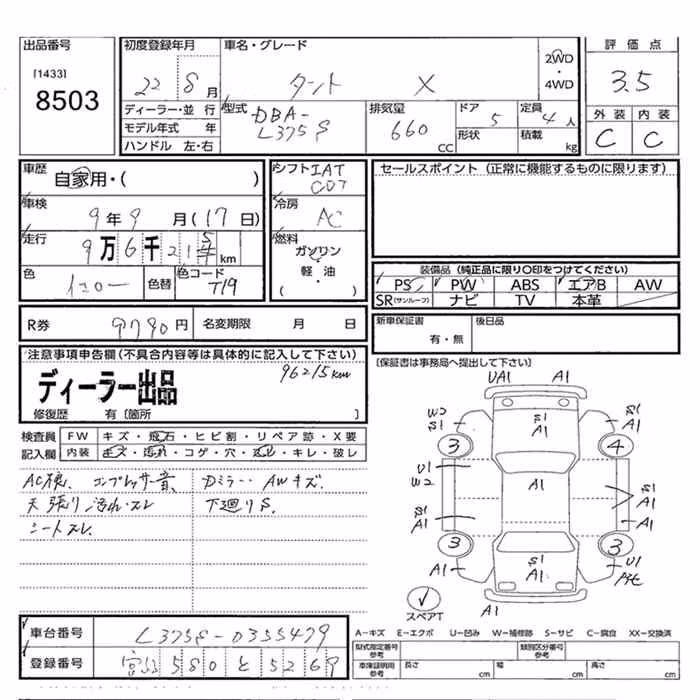 出品番号
[1433]
8503
初度登録年月
22 8月
車名・グレード
タント X
2WD
・
4WD
評価点
3.5
ディーラー・並 行
モデル年式 年
ハンドル 左・右
型式
DBA-
L375S
排気量
660
CC
ドア
5
形状
定員
4人
積載
kg
外装 内装
C C
車歴
自家用・( )
車検
9年9月(17日)
走行
9万6千215km
色
イエロー
色替
色コード
T19
シフト IAT
CDT
冷房
AC
燃料
ガソリン
軽・油
( )
セールスポイント (正常に機能するものに限ります)
装備品 (純正品に限り○印をつけてください)
PS PW ABS エアB AW
SR(サンルーフ) ナビ TV 本革
R券 9790円 名変期限 月 日
新車保証書
有・無
後日品
注意事項申告欄(不具合内容等は具体的に記入して下さい)
96215km
ディーラー出品
修復歴 有〔箇所 〕
〔保証書は事務局へ提出して下さい〕
検査員
記入欄
FW キズ・飛石・ヒビ割・リペア跡・X要
内装 キズ・汚れ・コゲ・穴・スレ・キレ・破レ
コンプレッサ音、 Dミラー・AWキズ.
天張り汚れ・スレ 下廻りS.
シートスレ.
UA1 A1
W2
S1
3
S1
A1
S1
A1
4
U1
W2
A1
S1
A1
S1
A1
A1
3
A1
S1
A1
3
U1
A1
スペアT
車台番号 L375S-0355479
登録番号 宮城 580 と 5269
A-キズ E-エクボ U-凹み W-補修跡 S-サビ C-腐食 XX-交換済
型式指定番号
参考
類別区分番号
参考
車庫証明用
参考
長さ cm 幅 cm 高さ cm